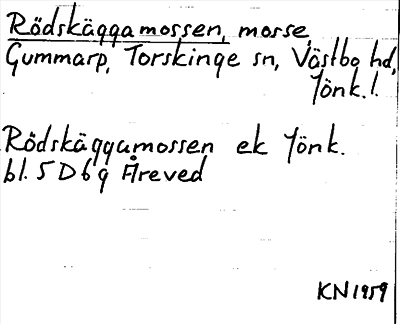 Rödskäggamossen, mosse
Gummarp, Torskinge sn, Västbo hd,
Jönk.l.
Rödskäggamossen ek Jönk.
bl. 5 D 6 g Åreved
KN 1959